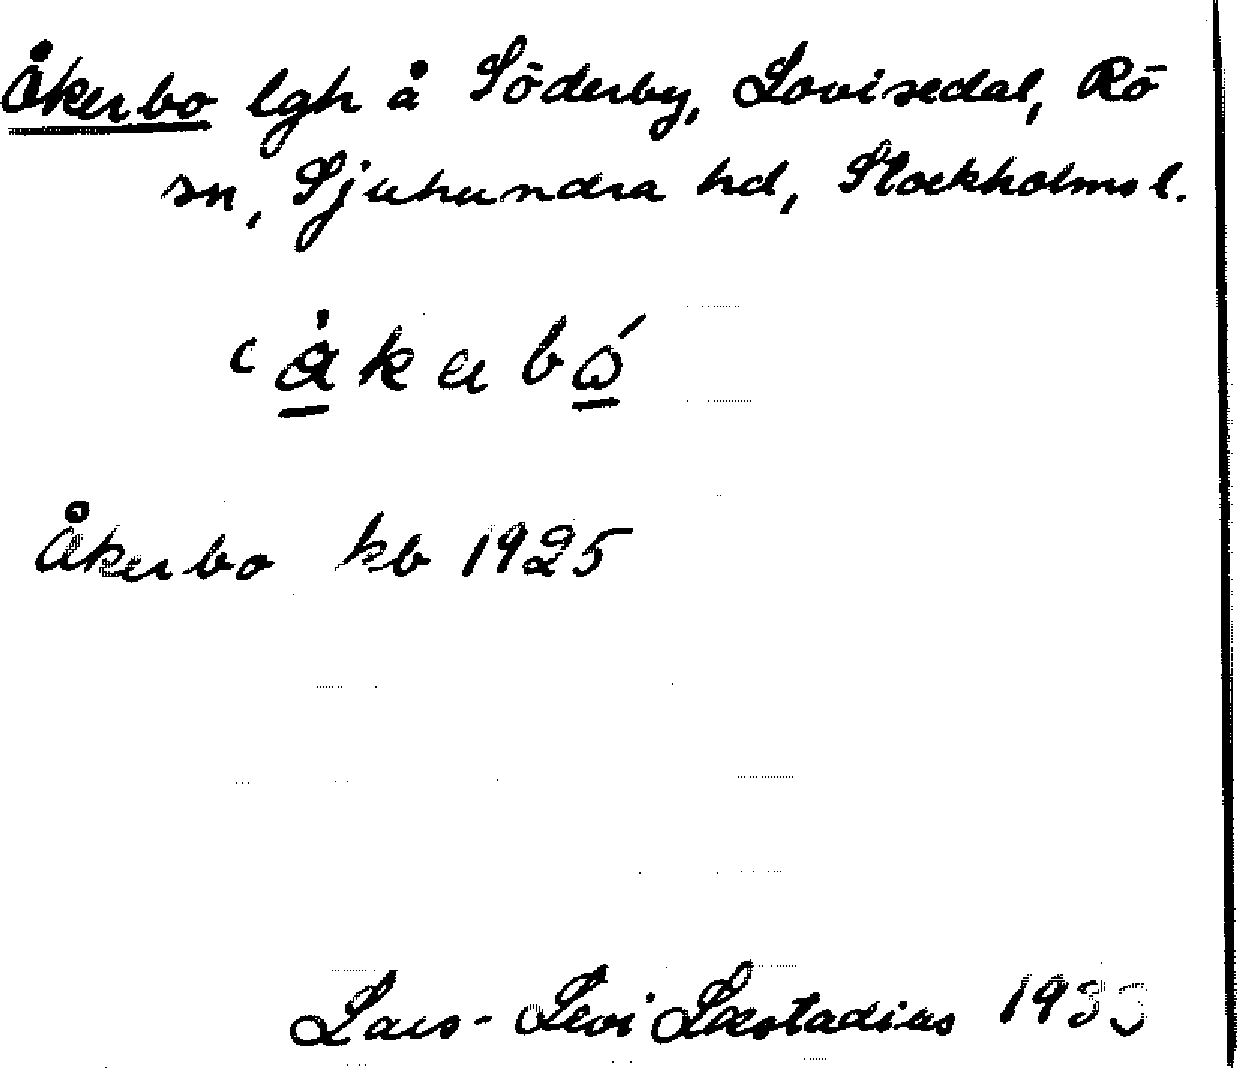 Åkerbo lgh å Söderby, Lovisedal, Rö
sn, Sjuhundra hd, Stockholms l.
Åkerbo kb 1925
Lars-Levi Læstadius 1933